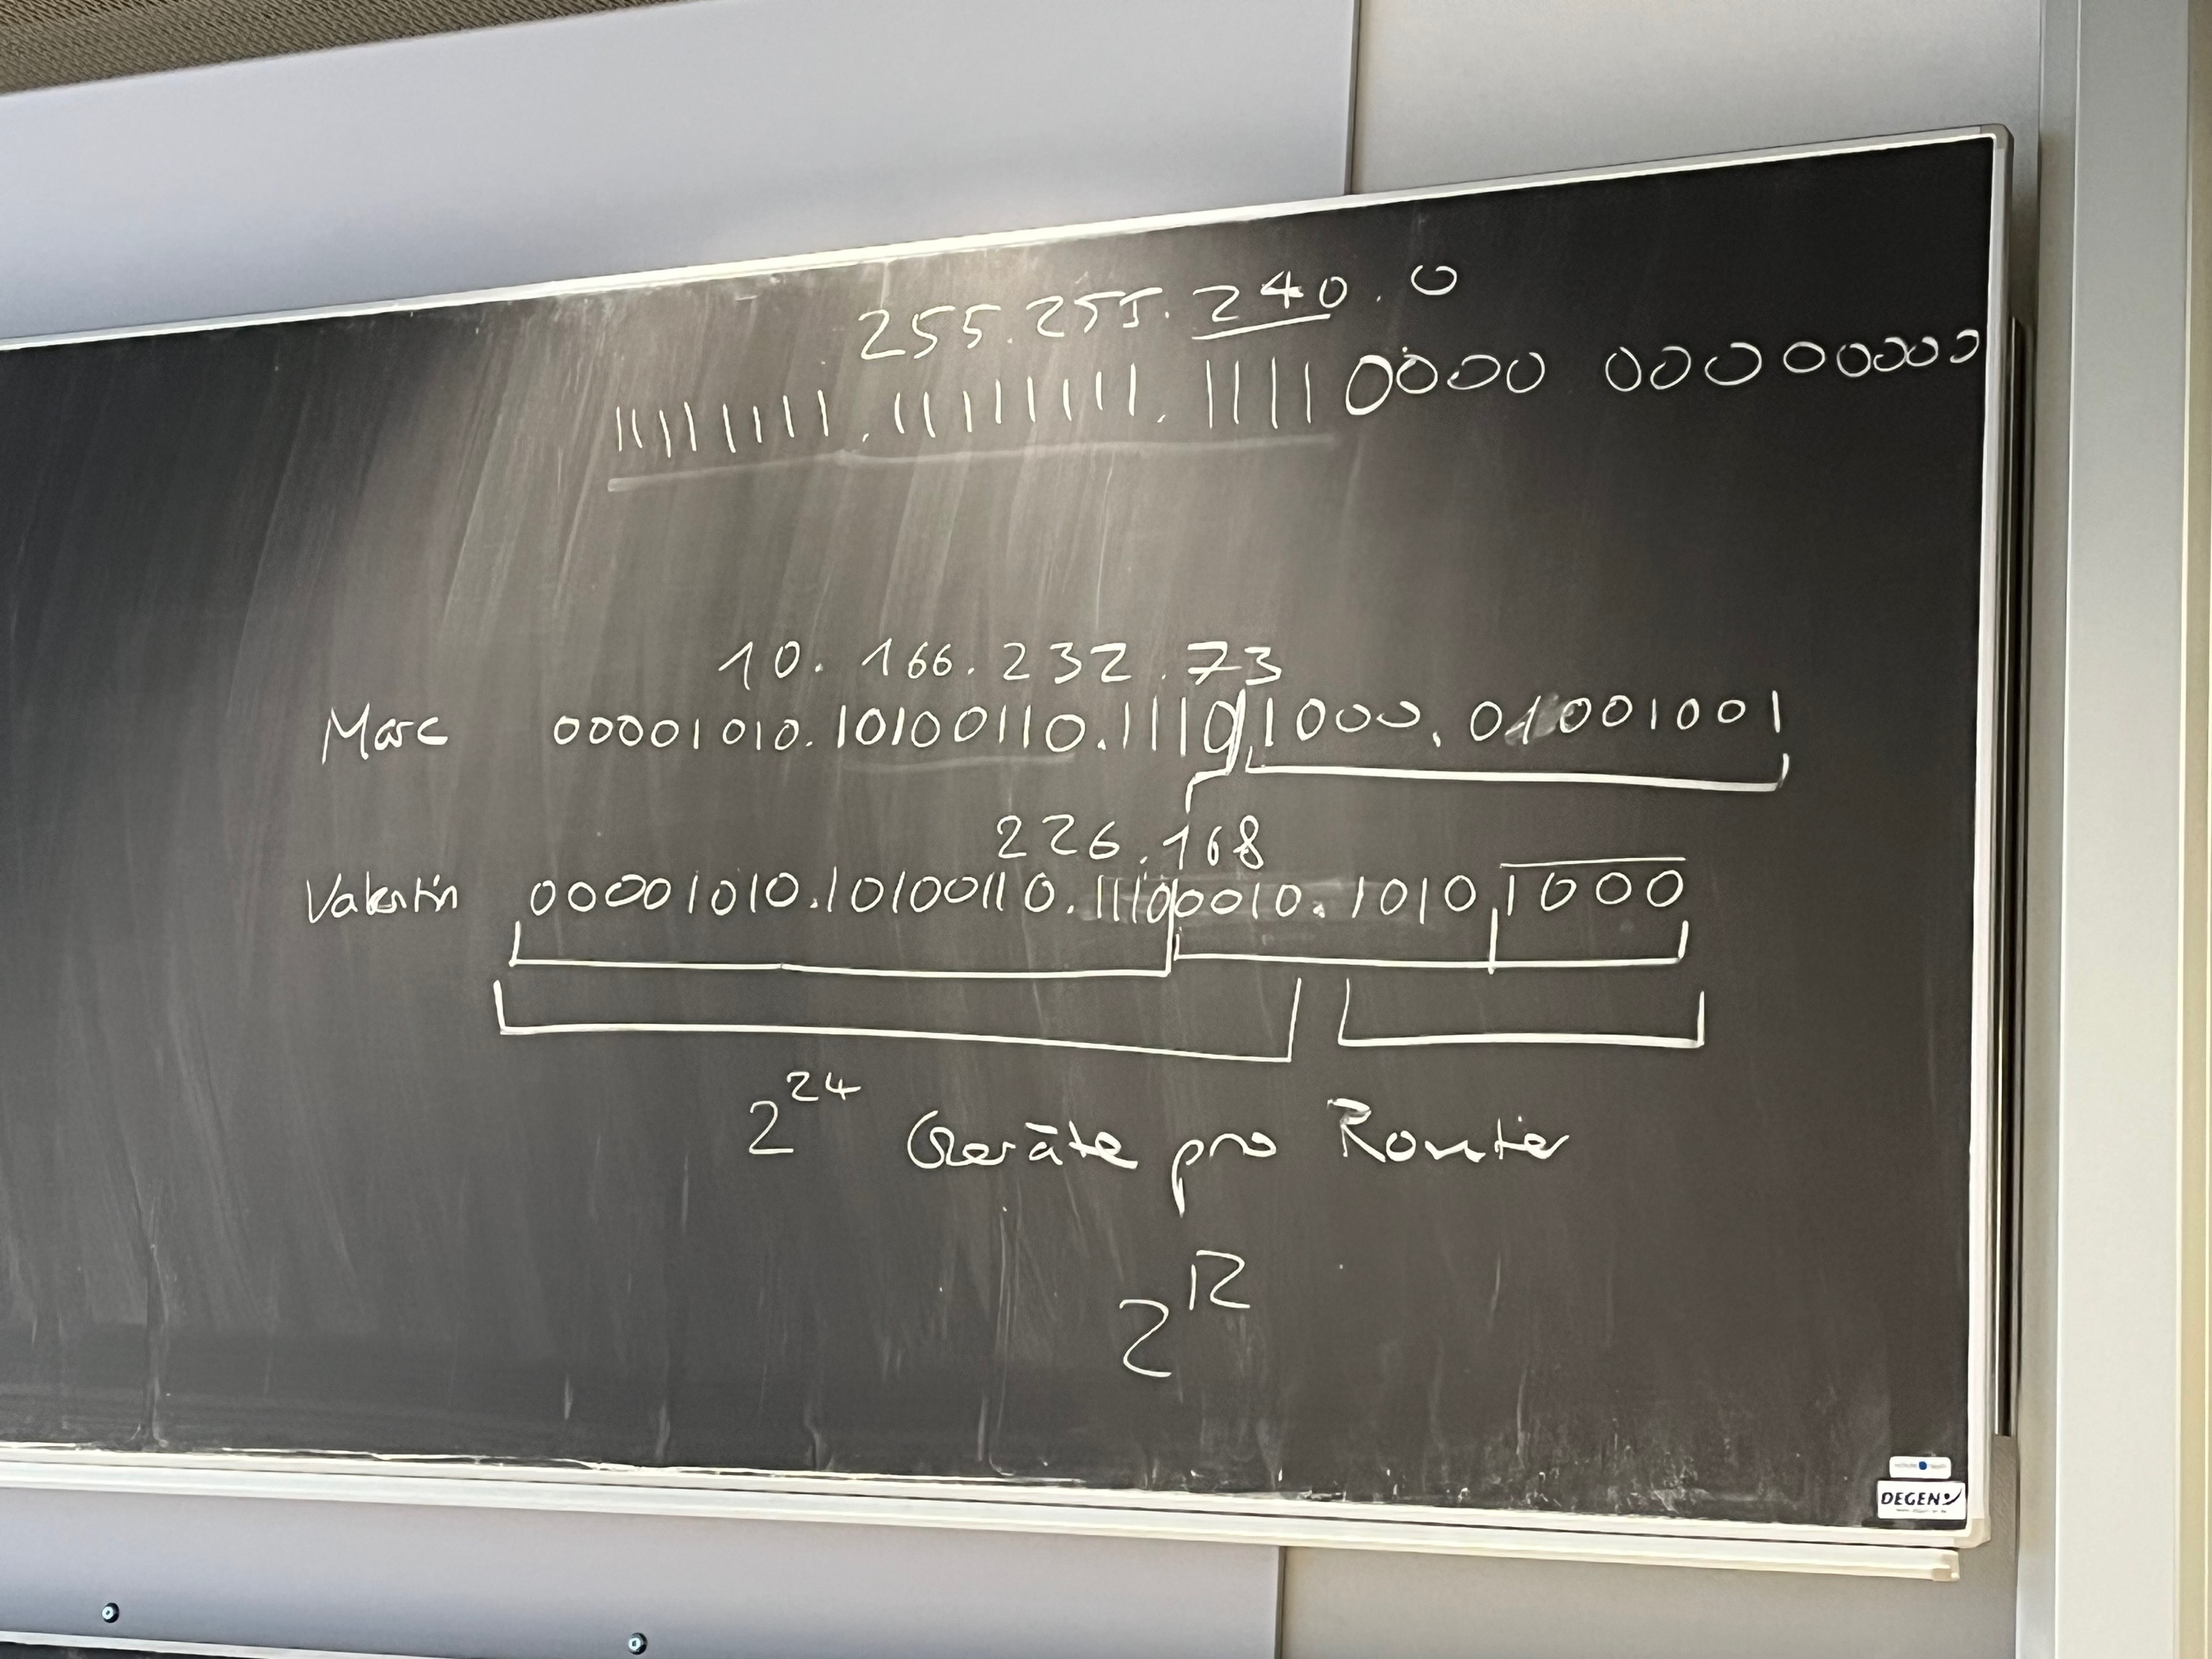 255.255.240.0
11111111.11111111.11110000 00000000
10.166.232.73
Marc 00001010.10100110.11101000.01001001
226.168
Valentin 00001010.10100110.11100010.10101000
2^24 Geräte pro Router
2^12
DEGEN